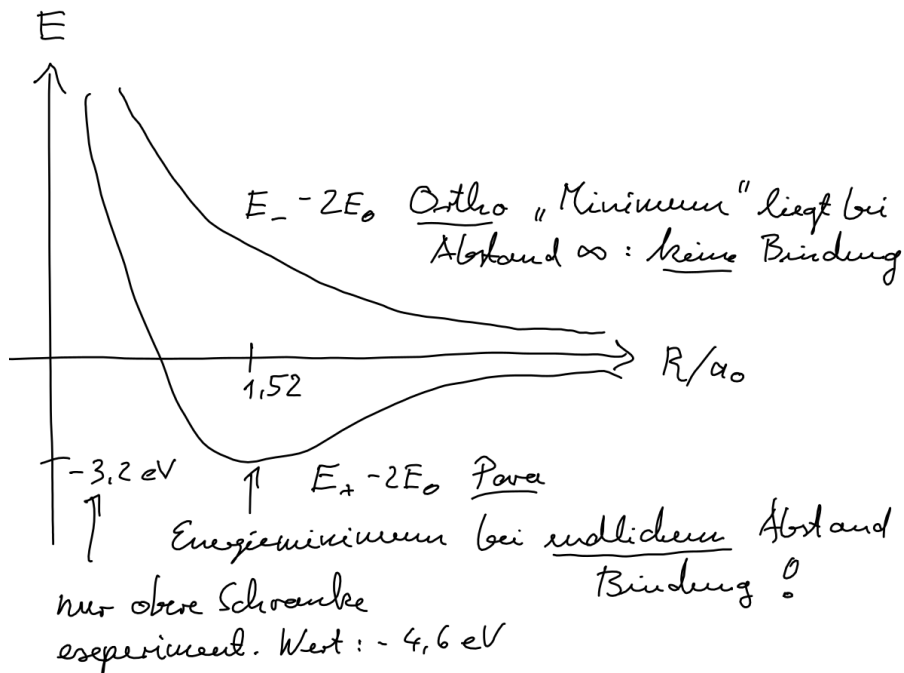 E
E₋ - 2E₀ Ortho „Minimum" liegt bei
Abstand ∞ : keine Bindung
R/a₀
1,52
-3,2 eV
E₊ - 2E₀ Para
Energieminimum bei endlichem Abstand
Bindung !
nur obere Schranke
experiment. Wert : - 4,6 eV